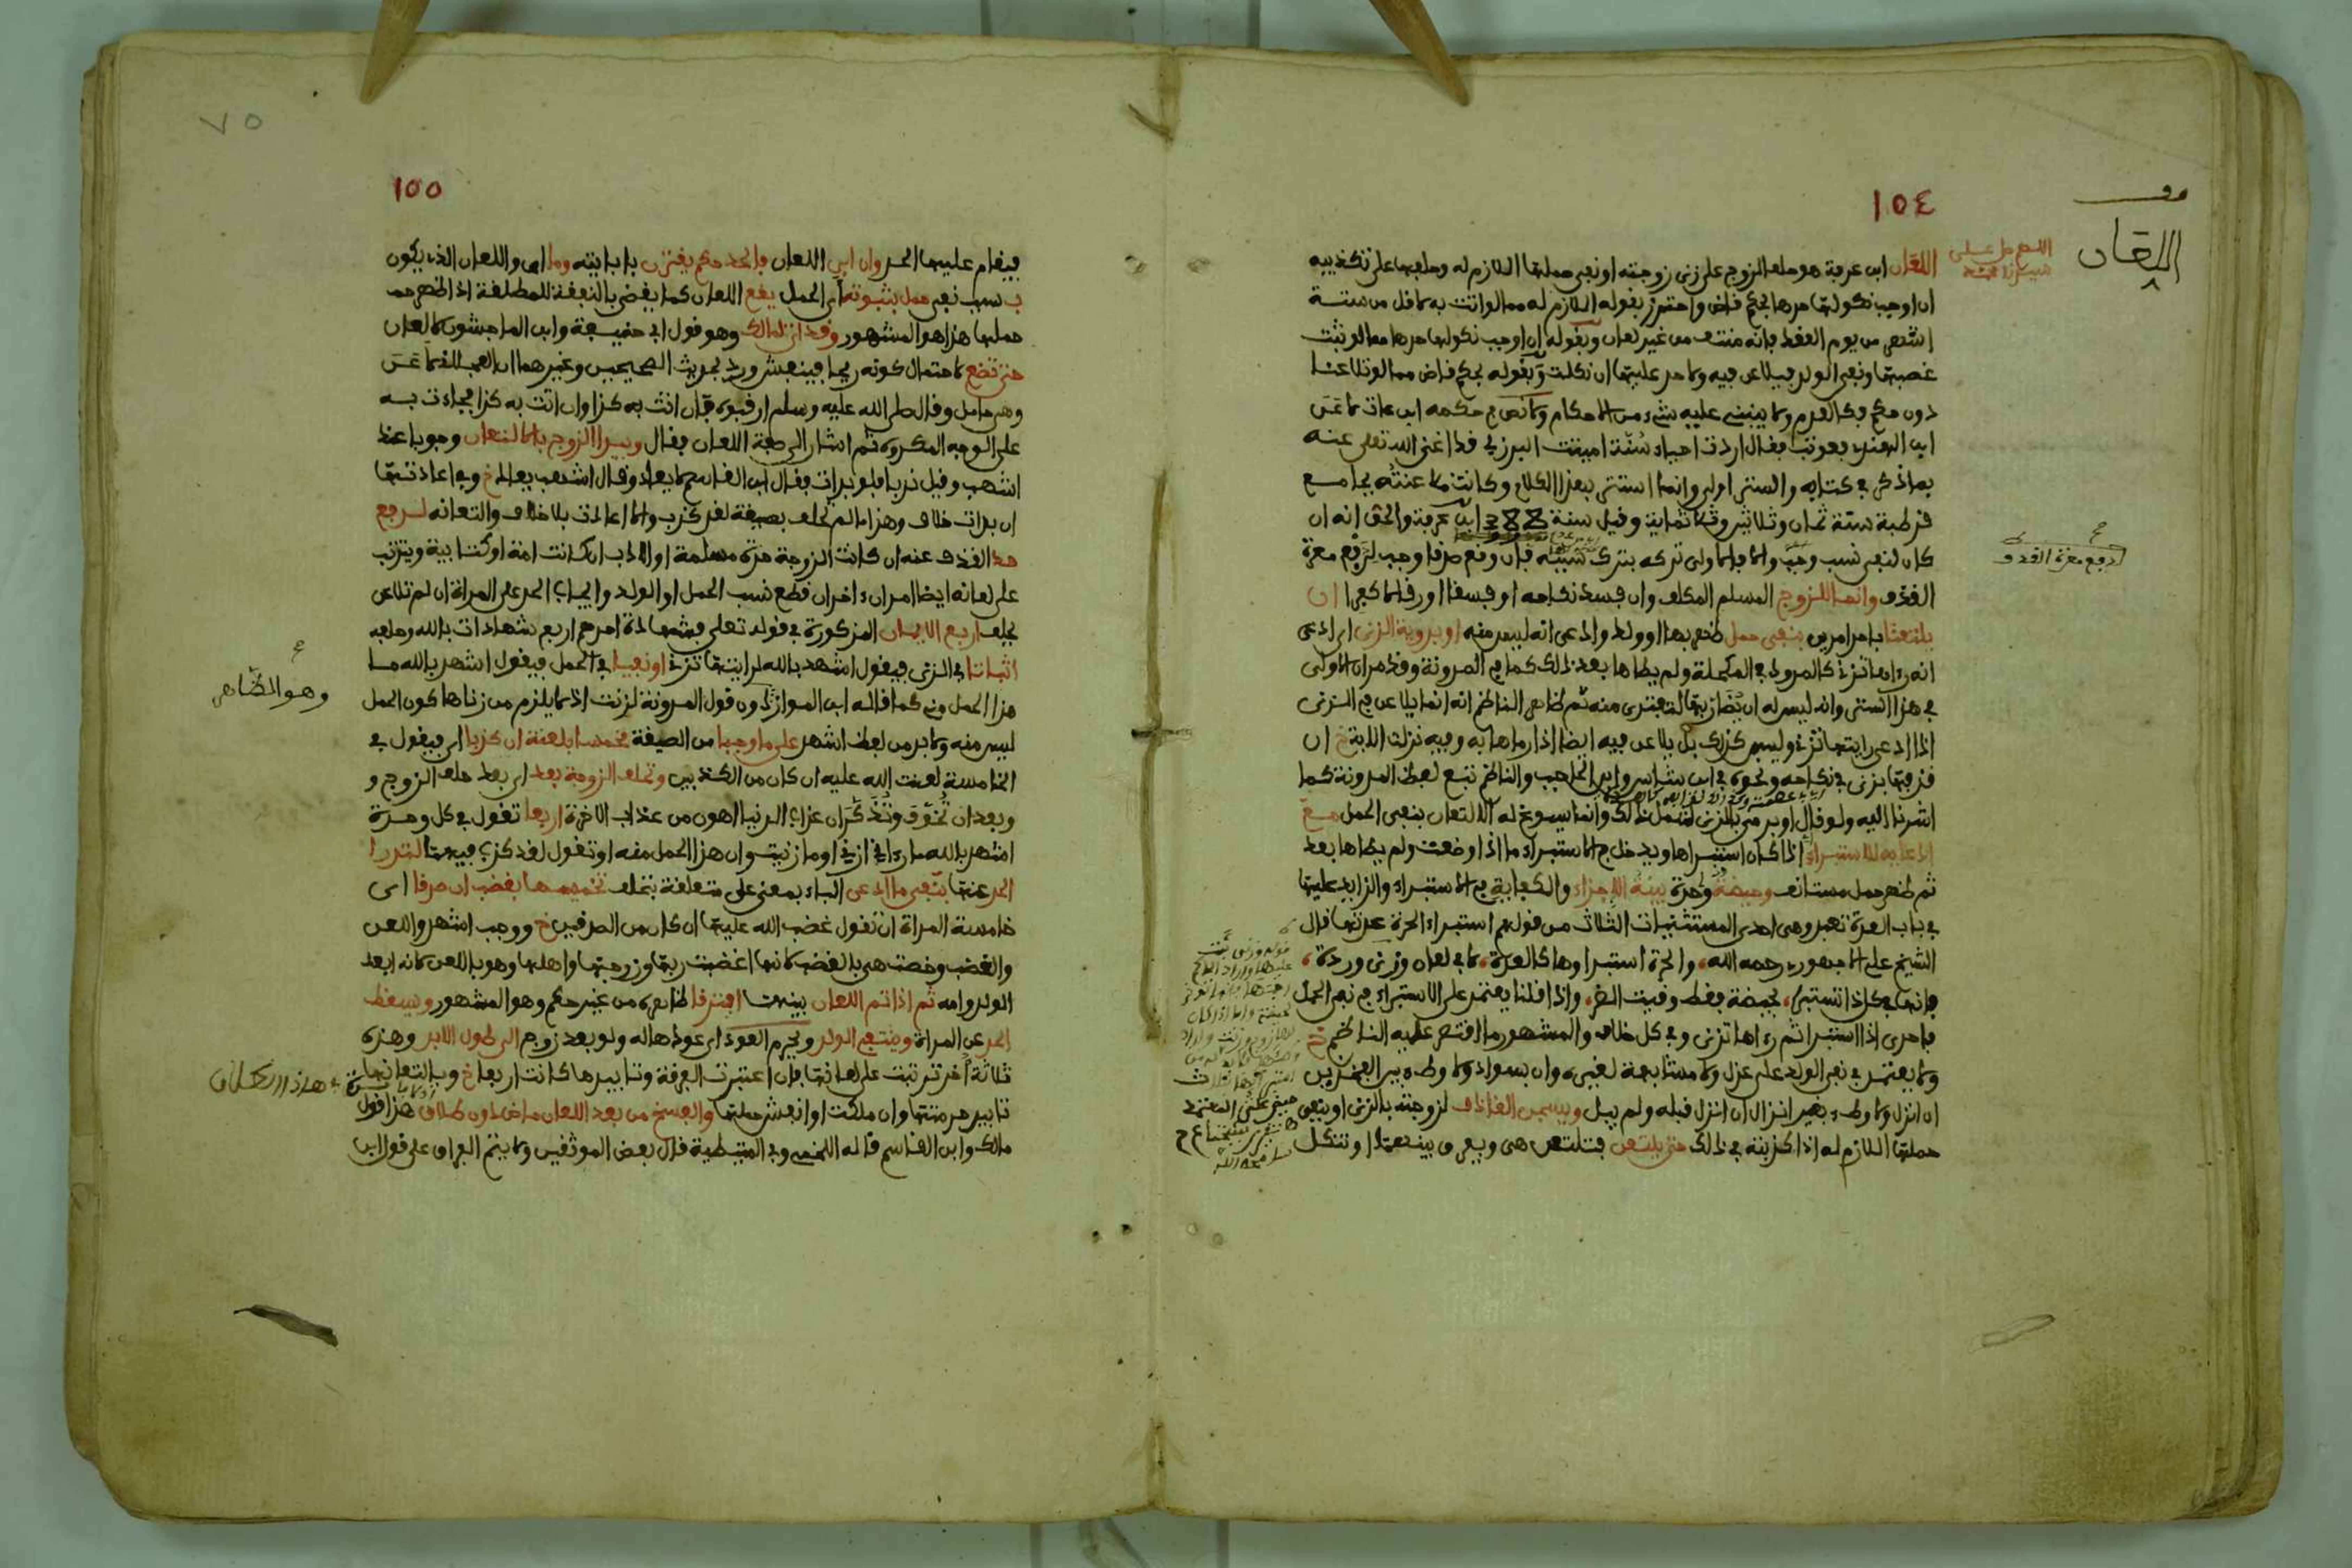 ١٥٤
اللعان
اللعان ابن عرفة هو حلف الزوج على زنى زوجته او نفي حملها اللازم له وحلفها على تكذيبه
ان اوجب نكولها حدها بحكم قاض واحترز بقوله اللازم له مما لو اتت به لاقل من ستة
اشهر من يوم العقد فانه منتف من غير لعان وبقوله ان اوجب نكولها حدها مما لو ثبت
غصبها ونفى الولد فيلاعن فيه ولا حد عليها ان نكلت وبقوله بحكم قاض مما لو تلاعنا
دون حكم فكالعدم ولا ينبني عليه شيء من الاحكام ولا نص في حكمه ابن عات لاعن
ابن الهندي فعوتب فقال اردت احياء سنة اميتت البرزلي قد اغنى الله تعلى عنه
بما ذكر في كتابه والستر اولى وانما استتر بهذا الكلام وكانت ملاعنته بجامع
قرطبة سنة ثمان وثلاثين وثلاثماية وقيل سنة 388 ابن عرفة والحق انه ان
كان لنفي نسب وجب والا فالاولى تركه بترك سببه فان وقع صدقا وجب لدفع معرة
لدفع معرة القذف
القذف وانما للزوج المسلم المكلف وان فسد نكاحه او فسقا او رقا لا كفرا ان
يلتعنا باحد امرين بنفي حمل ظهر بها او ولد وادعى انه ليس منه او بروية الزنى اي ادعى
انه رءاها تزني كالمرود في المكحلة ولم يطاها بعد ذلك كما في المدونة وقد مر ان الاولى
في هذا الستر وانه ليس له ان يضاررها لتفتدي منه ثم ظاهر الناظم انه انما يلاعن في الزنى
اذا ادعى رايتها تزني وليس كذلك بل يلاعن فيه ايضا اذا رماها به وفيه نزلت الاية خ ان
قذفها بزنى في نكاحه ونحوه في ابن شاس وابن الحاجب والناظم تبع لفظ المدونة كما
اشرنا اليه ولو قال او برمي بالزنى لشمل ذلك وانما يسوغ له الالتعان بنفي الحمل مع
ادعائه للاستبراء اذا كان استبراها ويدخل في الاستبراء ما اذا وضعت ولم يطاها بعد
ثم ظهر حمل مستانف وحيضة واحدة بينة الاجزاء والكفاية في الاستبراء والزايد عليها
في باب العدة تعبد وهي احدى المستثنيات الثلاث من قولهم استبراء الحرة عدتها قال
الشيخ علي الاجهوري رحمه الله، والحرة استبراوها كالعدة، لا في لعان وزنى وردة،
فانها في كل ذا تستبرا، بحيضة فقط وقيت الضر، واذا قلنا يعتمد على الاستبراء في نفي الحمل
فاحرى اذا استبرا ثم رءاها تزني وفي كل خلاف والمشهور ما اقتصر عليه الناظم خ
ولا يعتمد في نفي الولد على عزل ولا مشابهة لغيره وان بسواد ولا وطء بين الفخذين
ان انزل ولا وطء بغير انزال ان انزل قبله ولم يبل ويسجن القاذف لزوجته بالزنى او بنفي
حملها اللازم له اذا كذبته في ذلك حتى يلتعن فتلتعن هي ويفرق بينهما او تنكل
٧٥
١٥٥
فيقام عليها الحد وان ابى اللعان فالحد حكم يقترن بابايته وما اي واللعان الذي يكون
بسبب نفي حمل بثبوته اي الحمل يقع اللعان كما يقضى بالنفقة للمطلقة اذا ظهر
حملها هذا هو المشهور وقد انزل ذلك وهو قول ابي حنيفة وابن الماجشون لا لعان
حتى تضع لاحتمال كونه ريحا فينفش ورد بحديث الصحيحين وغيرهما ان العجلاني لاعن
وهي حامل وقال صلى الله عليه وسلم ارقبوه فان اتت به كذا وان اتت به كذا فجاءت به
على الوجه المكروه ثم اشار الى صفة اللعان فقال ويبدا الزوج بالالتعان وجوبا عند
اشهب وقيل ندبا فلو بدات فقال ابن القاسم لا يعاد وقال اشهب يعاد خ وفي اعادتها
ان بدات خلاف وهذا ما لم يحلف بصيغة لقد كذب والا اعادت بلا خلاف والتعانه لدفع
حد القذف عنه ان كانت الزوجة حرة مسلمة او الادب ان كانت امة او كتابية ويترتب
على لعانه ايضا امران ءاخران قطع نسب الحمل او الولد وايجاب الحد على المراة ان لم تلاعن
يحلف اربع الايمان المذكورة في قوله تعلى فشهادة احدهم اربع شهادات بالله وحلفه
اثباتا في الزنى فيقول اشهد بالله لرايتها تزني او نفيا في الحمل فيقول اشهد بالله ما
هذا الحمل مني كما قاله ابن المواز دون قول المدونة لزنت اذ لا يلزم من زناها كون الحمل
وهو الظاهر
ليس منه ولا بد من لفظ اشهد على ما وجبا من الصيغة مخمسا بلعنة ان كذبا اي فيقول في
الخامسة لعنت الله عليه ان كان من الكذبين وتحلف الزوجة بعد اي بعد حلف الزوج و
وبعد ان تخوف وتذكر ان عذاب الدنيا اهون من عذاب الاخرة اربعا تقول في كل مرة
اشهد بالله ما رءاني ازني او ما زنيت وان هذا الحمل منه او تقول لقد كذب فيهما لتدرا
الحد عنها بنفي ما ادعى الباء بمعنى على متعلقة بتحلف تخميسها بغضب ان صدقا اي
خامسة المراة ان تقول غضب الله عليها ان كان من الصدقين خ ووجب اشهد واللعن
والغضب وخصت هي بالغضب لانها اغضبت ربها وزوجها واهلها وهو باللعن لانه ابعد
الولد وامه ثم اذا تم اللعان بينهما افترقا ظاهره من غير حكم وهو المشهور ويسقط
الحد عن المراة وينتفي الولد ويحرم العود اي عودها له ولو بعد زوج الى طول الابد وهذه
ثلاثة اخر ترتبت على لعانها فان اعتبرت الفرقة وتابيدها كانت اربعا خ وبالتعانها
تابيد حرمتها وان ملكت او انفش حملها والفسخ من بعد اللعان ماض دون طلاق هذا قول
مالك وابن القاسم قاله اللخمي وفي المتيطية قال بعض الموثقين ولا يتم الفراق على قول ابن